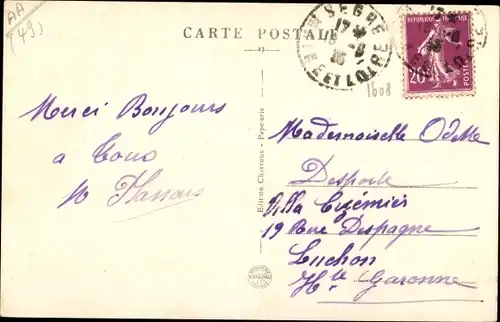 AA
(49)
CARTE POSTALE
SEGRÉ
17
ET LOIRE
REPUBLIQUE FRANÇAISE
20
POSTES
1608
Merci Bonjours
a Tous
Mademoiselle Odette
Desporte
Villa Crémier
19 Rue Despagne
Luchon
Hte Garonne
Edition Charroux - Papeterie